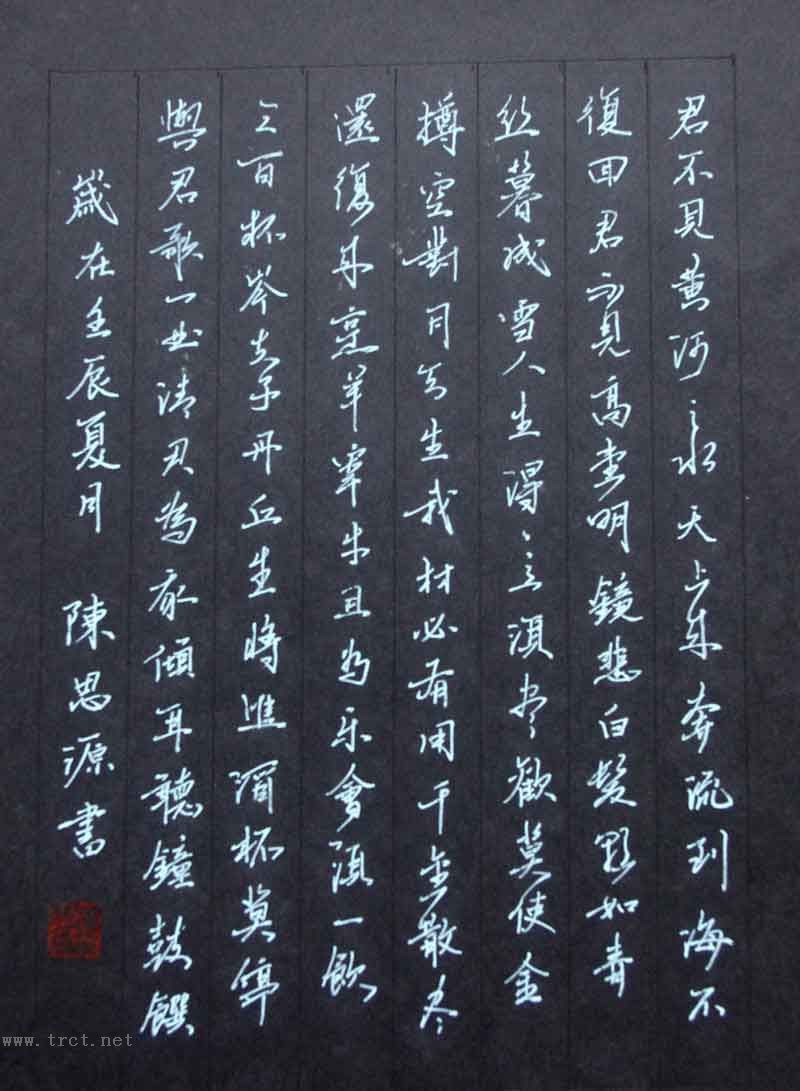 君不見黄河之水天上来奔流到海不
復回君不見高堂明鏡悲白髮朝如青
丝暮成雪人生得意須尽歡莫使金
樽空對月天生我材必有用千金散尽
還復来烹羊宰牛且为乐會須一飲
三百杯岑夫子丹丘生將進酒杯莫停
與君歌一曲请君為我傾耳聽鐘鼓饌
歲在壬辰夏月 陳思源書
www.trct.net